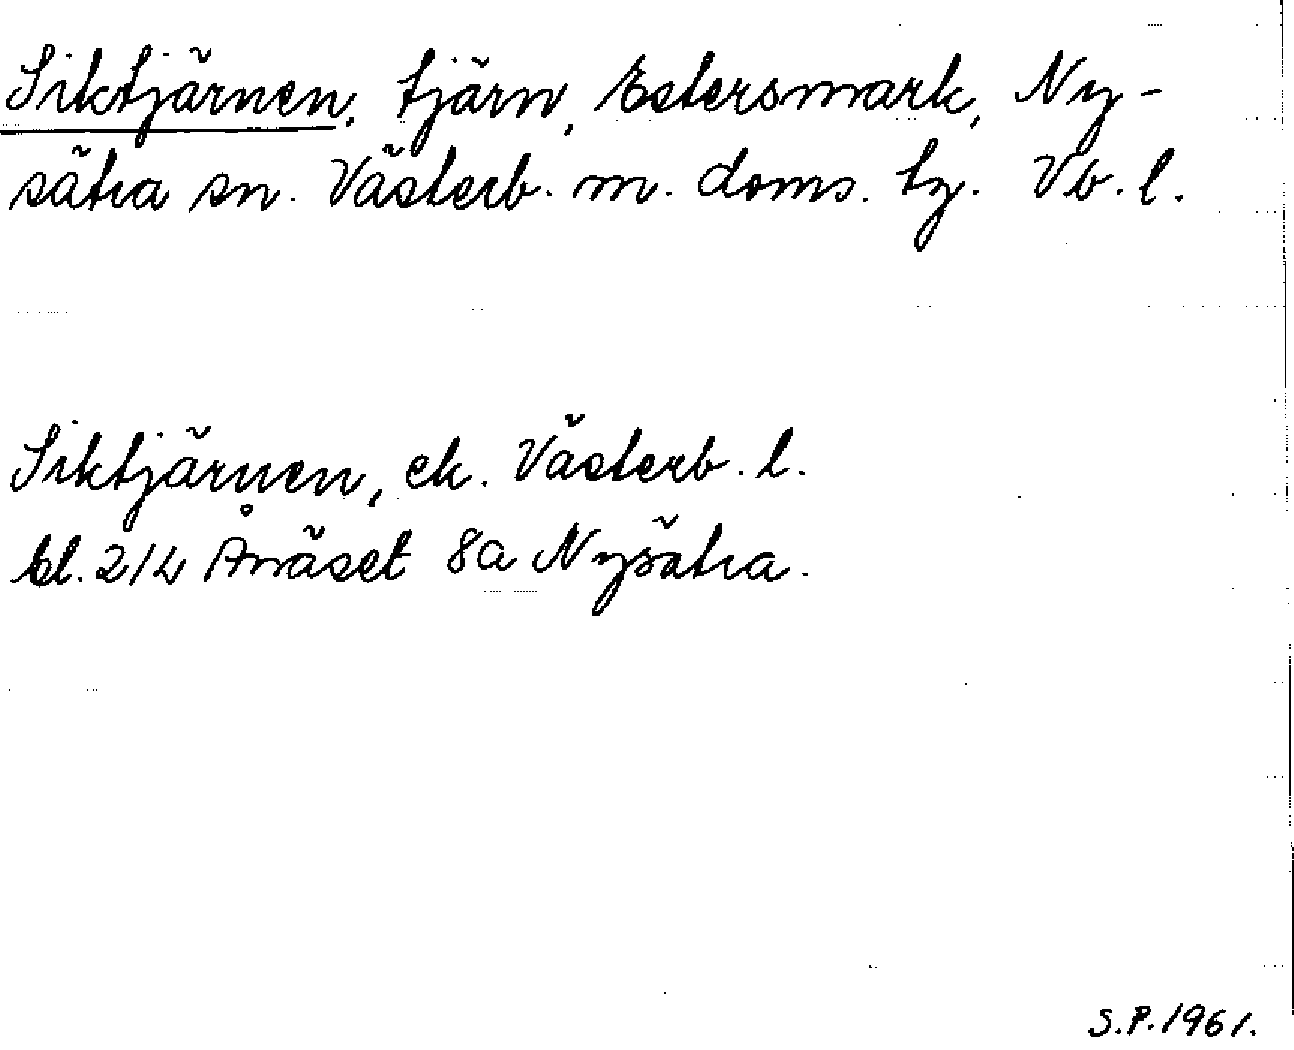 Siktjärnen, tjärn, Estersmark, Ny-
sätra sn. Västerb. m. doms. tg. Vb. l.
Siktjärnen, ek. Västerb. l.
bl. 214 Ånäset 8a Nysätra.
S.P. 1961.